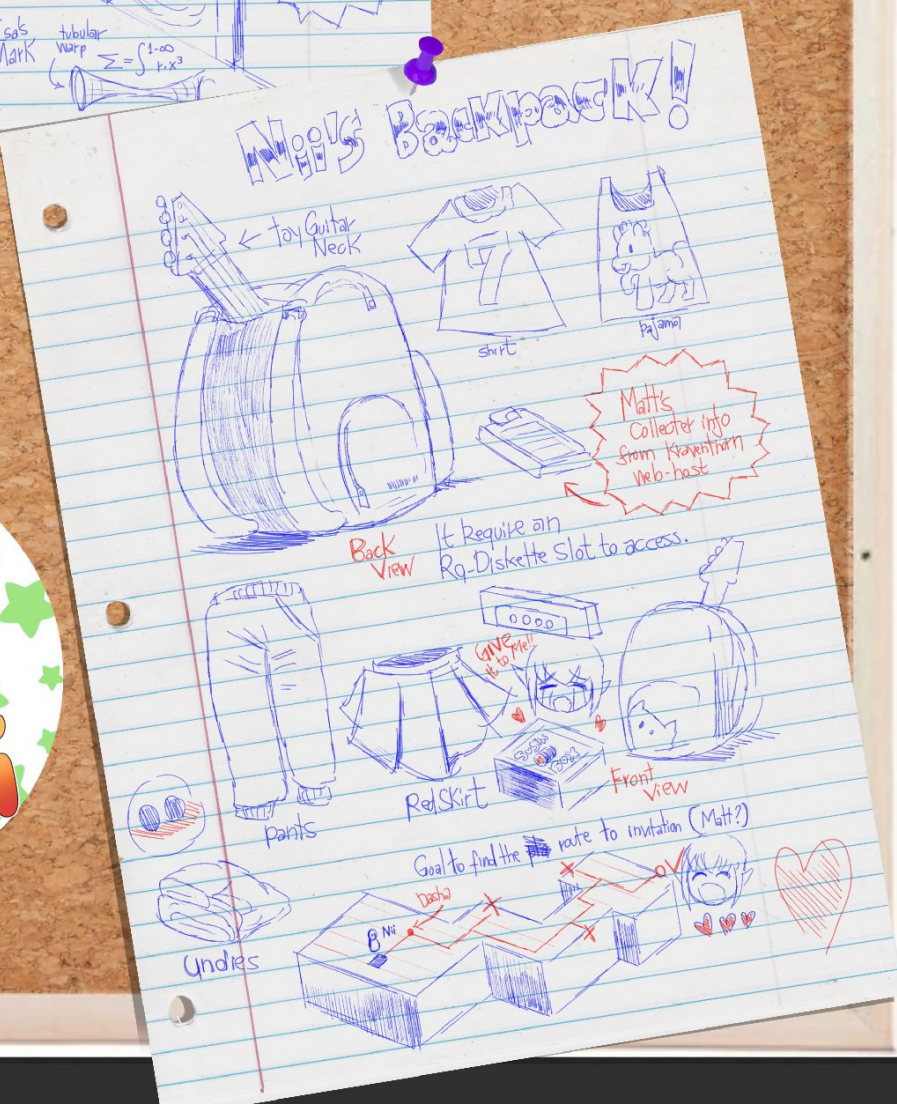 sa's
Mark
tubular
Warp
Nii's Backpack!
← toy Guitar
Neck
shirt
Pajama
Matt's
Collecter info
from Kraventhorn
Web-host
Back
View
It Require an
RQ-Diskette Slot to access.
GIVE
It to Me!!
pants
Red Skirt
Front
View
Goal to find the route to invitation (Matt?)
Dasha
Nii
Undies